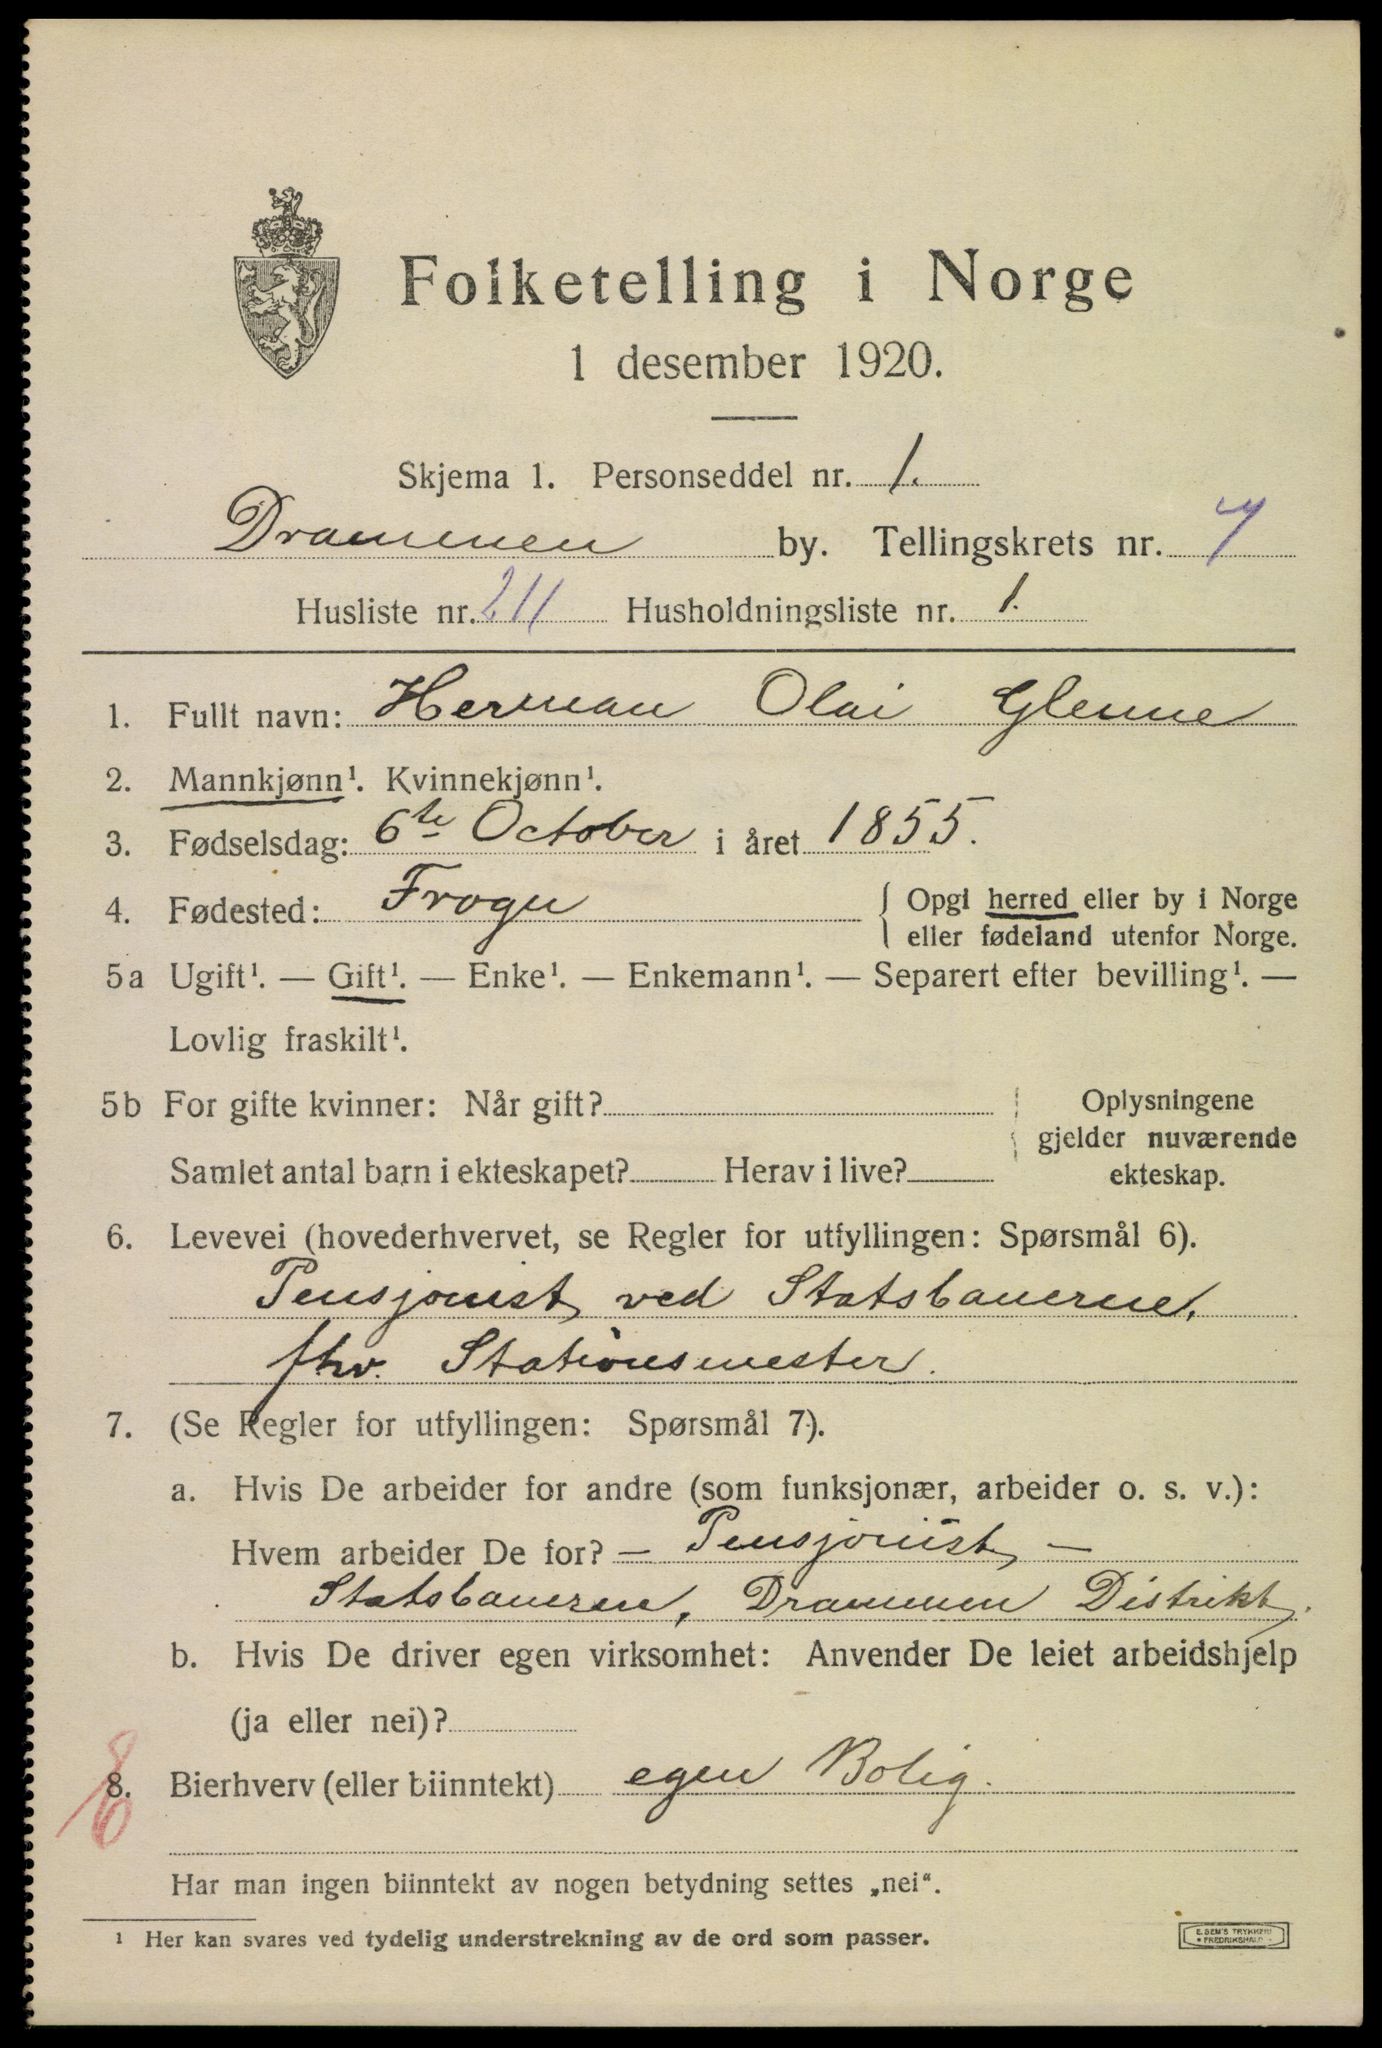 Folketelling i Norge
1 desember 1920.
Skjema 1. Personseddel nr. 1.
Drammen by. Tellingskrets nr. 7
Husliste nr. 211 Husholdningsliste nr. 1.
1. Fullt navn: Herman Olai Glenne
2. Mannkjønn¹. Kvinnekjønn¹.
3. Fødselsdag: 6te October i året 1855.
4. Fødested: Frogn { Opgi herred eller by i Norge
eller fødeland utenfor Norge.
5a Ugift¹. — Gift¹. — Enke¹. — Enkemann¹. — Separert efter bevilling¹. —
Lovlig fraskilt¹.
5b For gifte kvinner: Når gift? Oplysningene
gjelder nuværende
Samlet antal barn i ekteskapet? Herav i live? ekteskap.
6. Levevei (hovederhvervet, se Regler for utfyllingen: Spørsmål 6).
Pensjonist ved Statsbanerne,
fhv. Stationsmester.
7. (Se Regler for utfyllingen: Spørsmål 7).
a. Hvis De arbeider for andre (som funksjonær, arbeider o. s. v.):
Hvem arbeider De for? — Pensjonist —
Statsbanerne, Drammen Distrikt.
b. Hvis De driver egen virksomhet: Anvender De leiet arbeidshjelp
(ja eller nei)?
8. Bierhverv (eller biinntekt) egen Bolig.
Har man ingen biinntekt av nogen betydning settes „nei“.
¹ Her kan svares ved tydelig understrekning av de ord som passer.
E. SEM'S TRYKKERI
FREDRIKSHALD